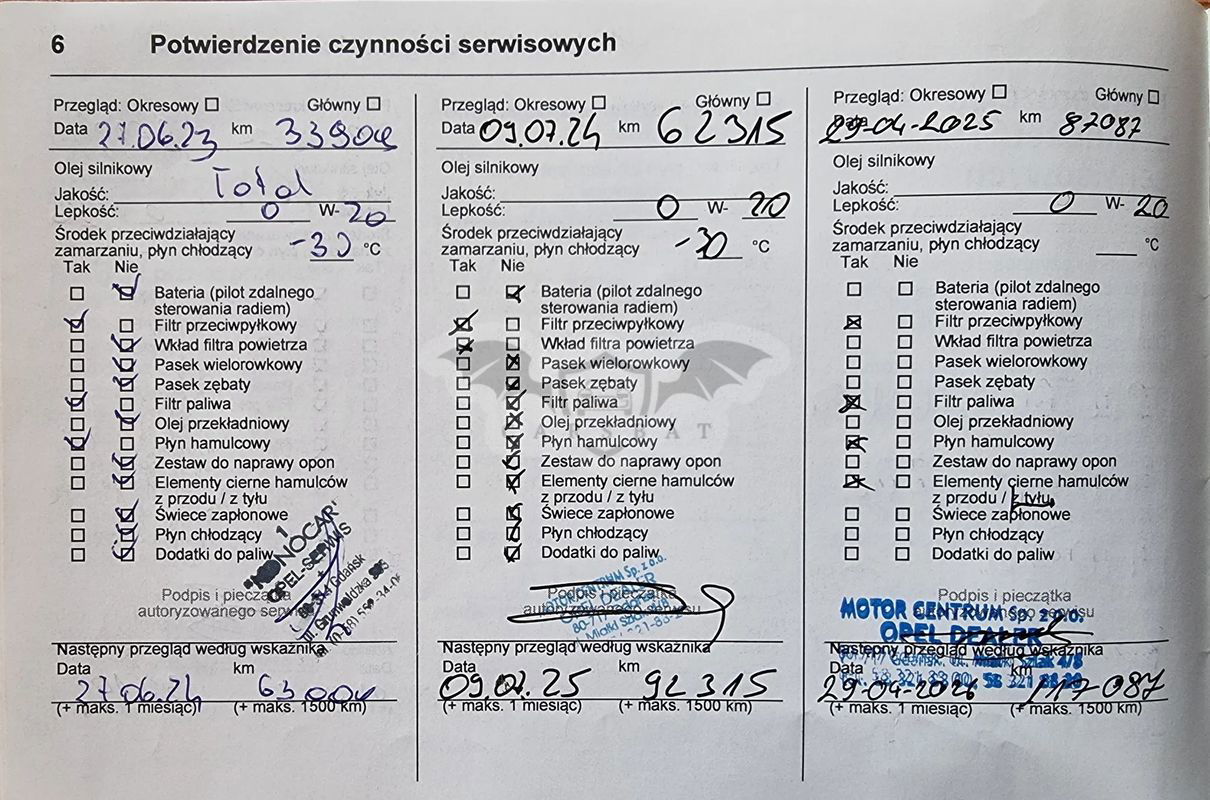 6 Potwierdzenie czynności serwisowych
Przegląd: Okresowy Główny
Data 27.06.23 km 33904
Olej silnikowy
Jakość: Total
Lepkość: 0 W- 20
Środek przeciwdziałający
zamarzaniu, płyn chłodzący -30 °C
Tak Nie
Bateria (pilot zdalnego
sterowania radiem)
Filtr przeciwpyłkowy
Wkład filtra powietrza
Pasek wielorowkowy
Pasek zębaty
Filtr paliwa
Olej przekładniowy
Płyn hamulcowy
Zestaw do naprawy opon
Elementy cierne hamulców
z przodu / z tyłu
Świece zapłonowe
Płyn chłodzący
Dodatki do paliw
"MONOCAR"
OPEL-SERWIS
Gdańsk
ul. Grunwaldzka
Podpis i pieczątka
autoryzowanego serwisu
Następny przegląd według wskaźnika
Data km
27.06.24 63904
(+ maks. 1 miesiąc) (+ maks. 1500 km)
Przegląd: Okresowy Główny
Data 09.07.24 km 62315
Olej silnikowy
Jakość:
Lepkość: 0 W- 20
Środek przeciwdziałający
zamarzaniu, płyn chłodzący -30 °C
Tak Nie
Bateria (pilot zdalnego
sterowania radiem)
Filtr przeciwpyłkowy
Wkład filtra powietrza
Pasek wielorowkowy
Pasek zębaty
Filtr paliwa
Olej przekładniowy
Płyn hamulcowy
Zestaw do naprawy opon
Elementy cierne hamulców
z przodu / z tyłu
Świece zapłonowe
Płyn chłodzący
Dodatki do paliw
MOTOR CENTRUM Sp. z o.o.
OPEL DEALER
Podpis i pieczątka
autoryzowanego serwisu
Następny przegląd według wskaźnika
Data km
09.07.25 92315
(+ maks. 1 miesiąc) (+ maks. 1500 km)
Przegląd: Okresowy Główny
Data 29-04-2025 km 87087
Olej silnikowy
Jakość:
Lepkość: 0 W- 20
Środek przeciwdziałający
zamarzaniu, płyn chłodzący °C
Tak Nie
Bateria (pilot zdalnego
sterowania radiem)
Filtr przeciwpyłkowy
Wkład filtra powietrza
Pasek wielorowkowy
Pasek zębaty
Filtr paliwa
Olej przekładniowy
Płyn hamulcowy
Zestaw do naprawy opon
Elementy cierne hamulców
z przodu / z tyłu
Świece zapłonowe
Płyn chłodzący
Dodatki do paliw
Podpis i pieczątka
autoryzowanego serwisu
MOTOR CENTRUM Sp. z o.o.
OPEL DEALER
Następny przegląd według wskaźnika
Gdańsk, ul. Miałki Szlak 4/8
Data km
29-04-2026 117087
(+ maks. 1 miesiąc) (+ maks. 1500 km)
CARSBAT